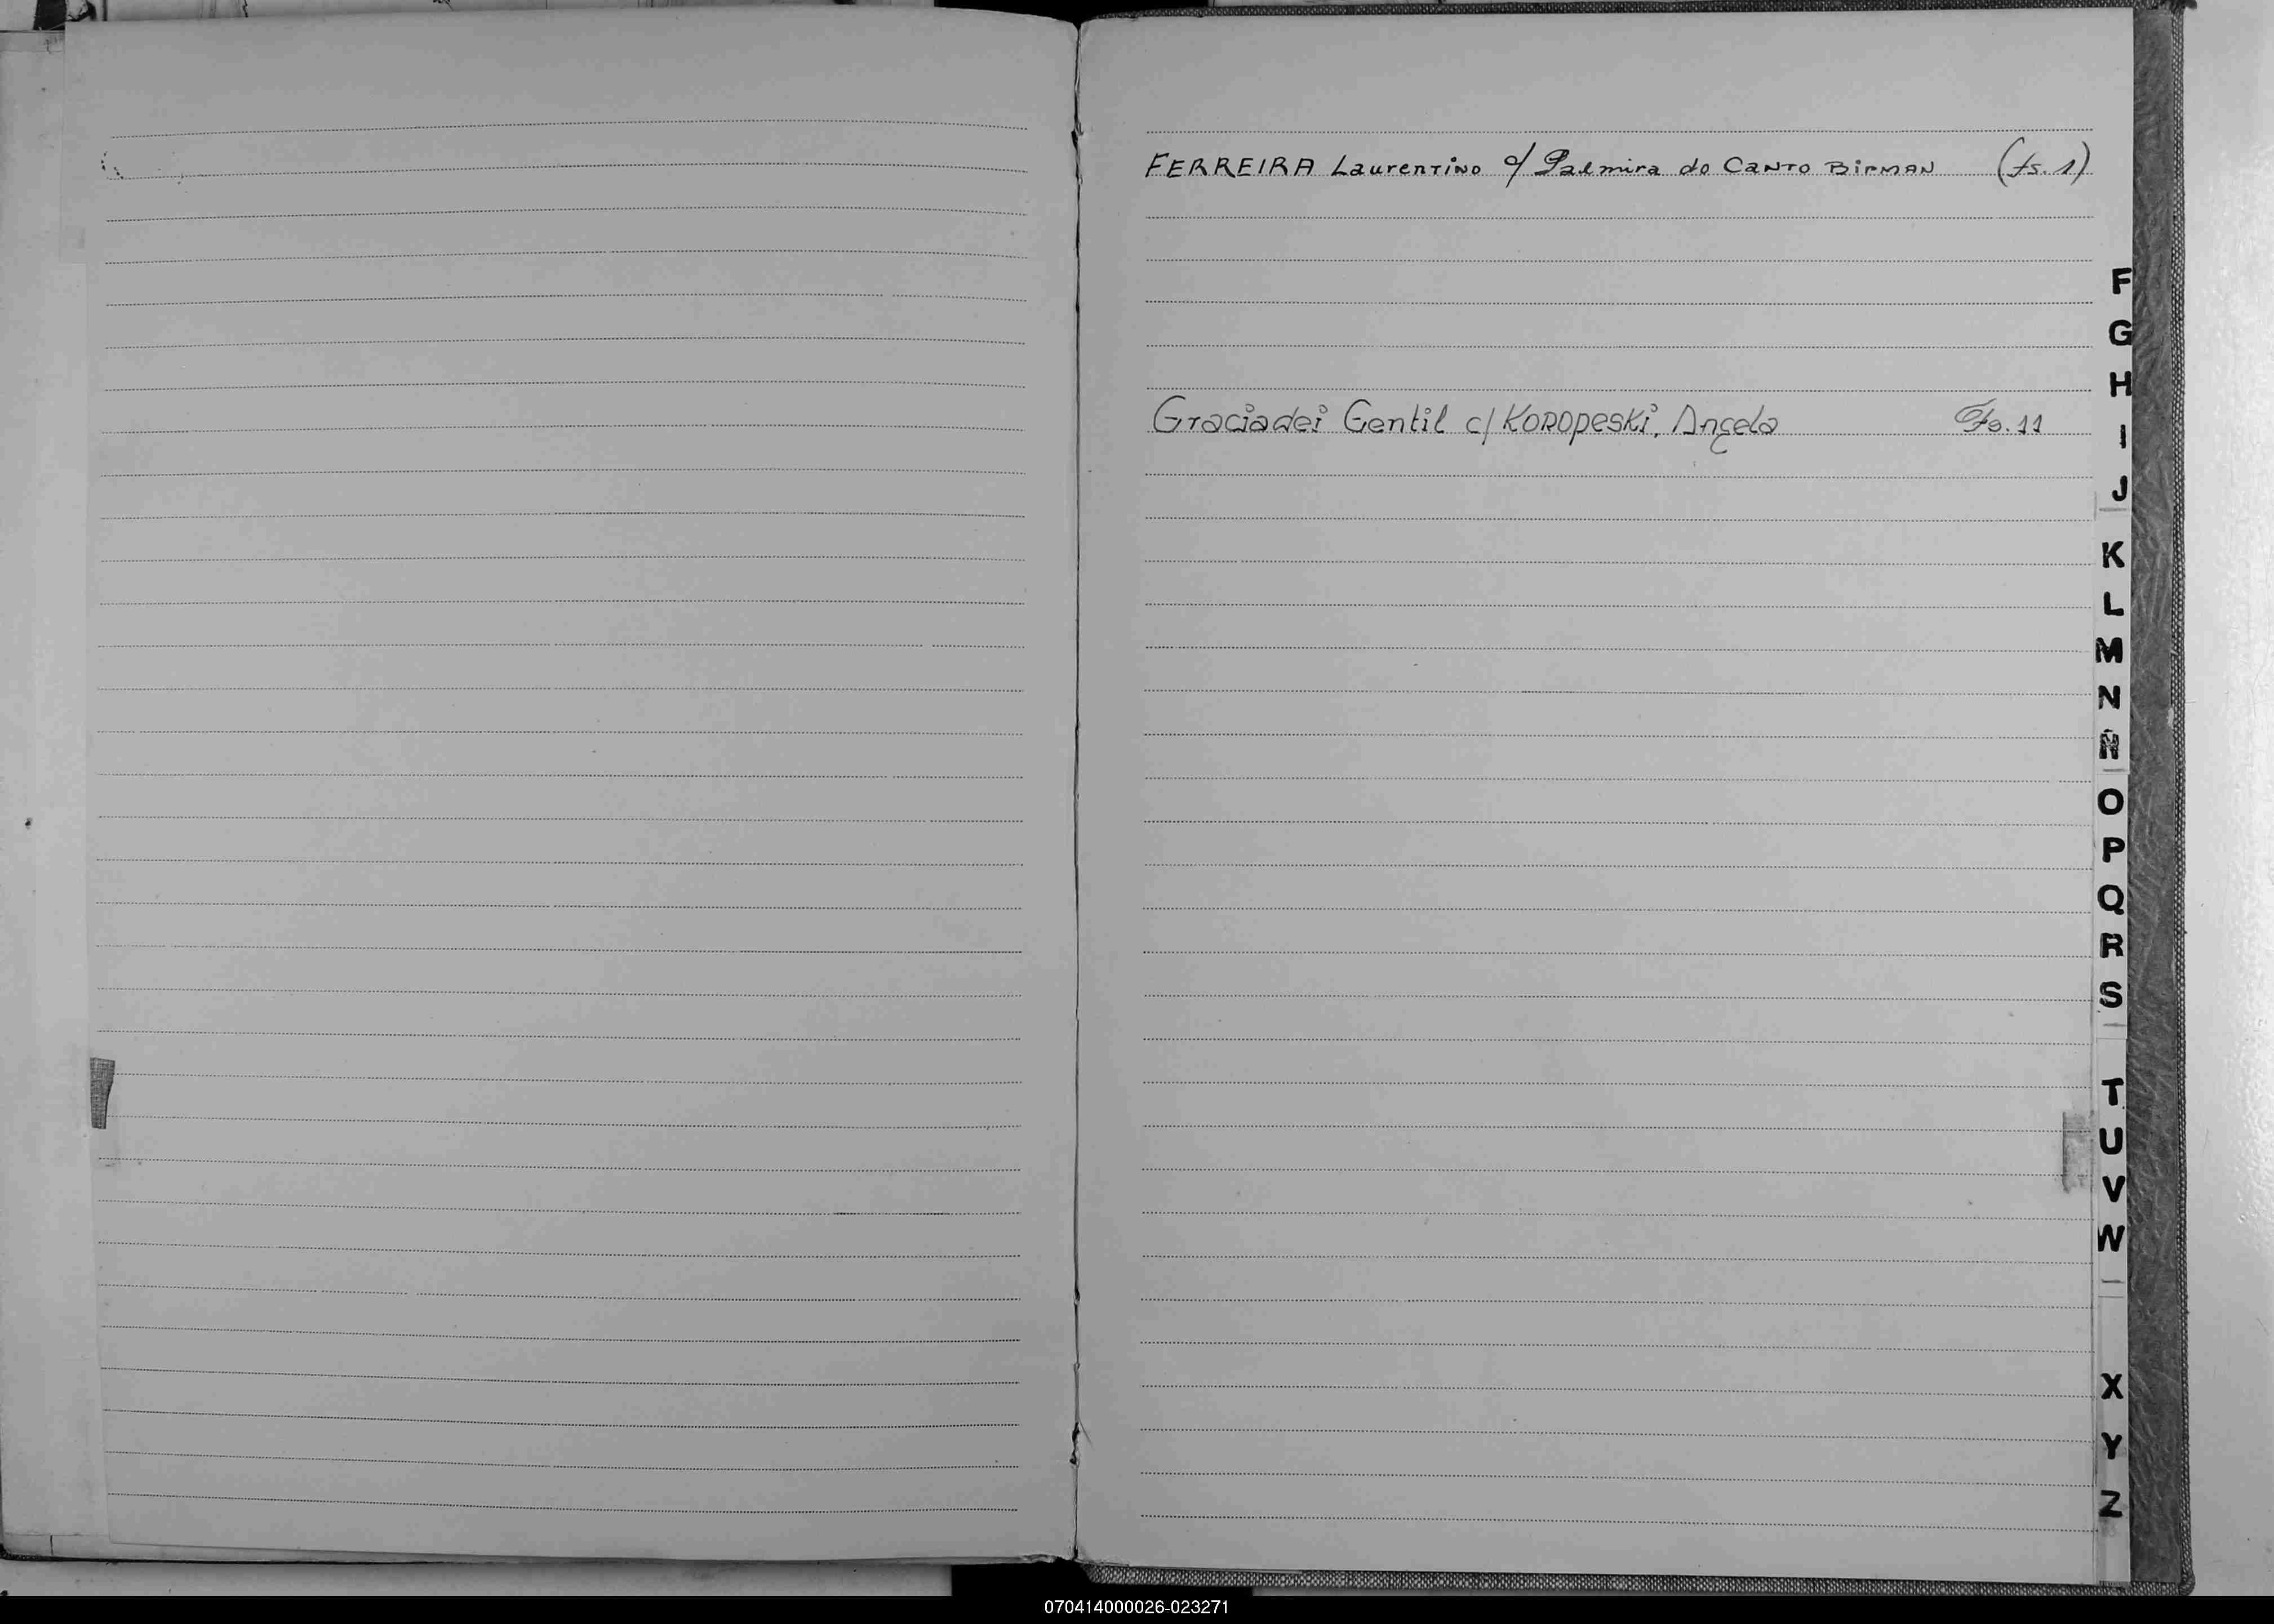 FERREIRA Laurentino c/ Palmira do Canto Birman (fs. 1)
Graciadei Gentil c/ Koropeski, Angela Fs. 11
F
G
H
I
J
K
L
M
N
Ñ
O
P
Q
R
S
T
U
V
W
X
Y
Z
070414000026-023271